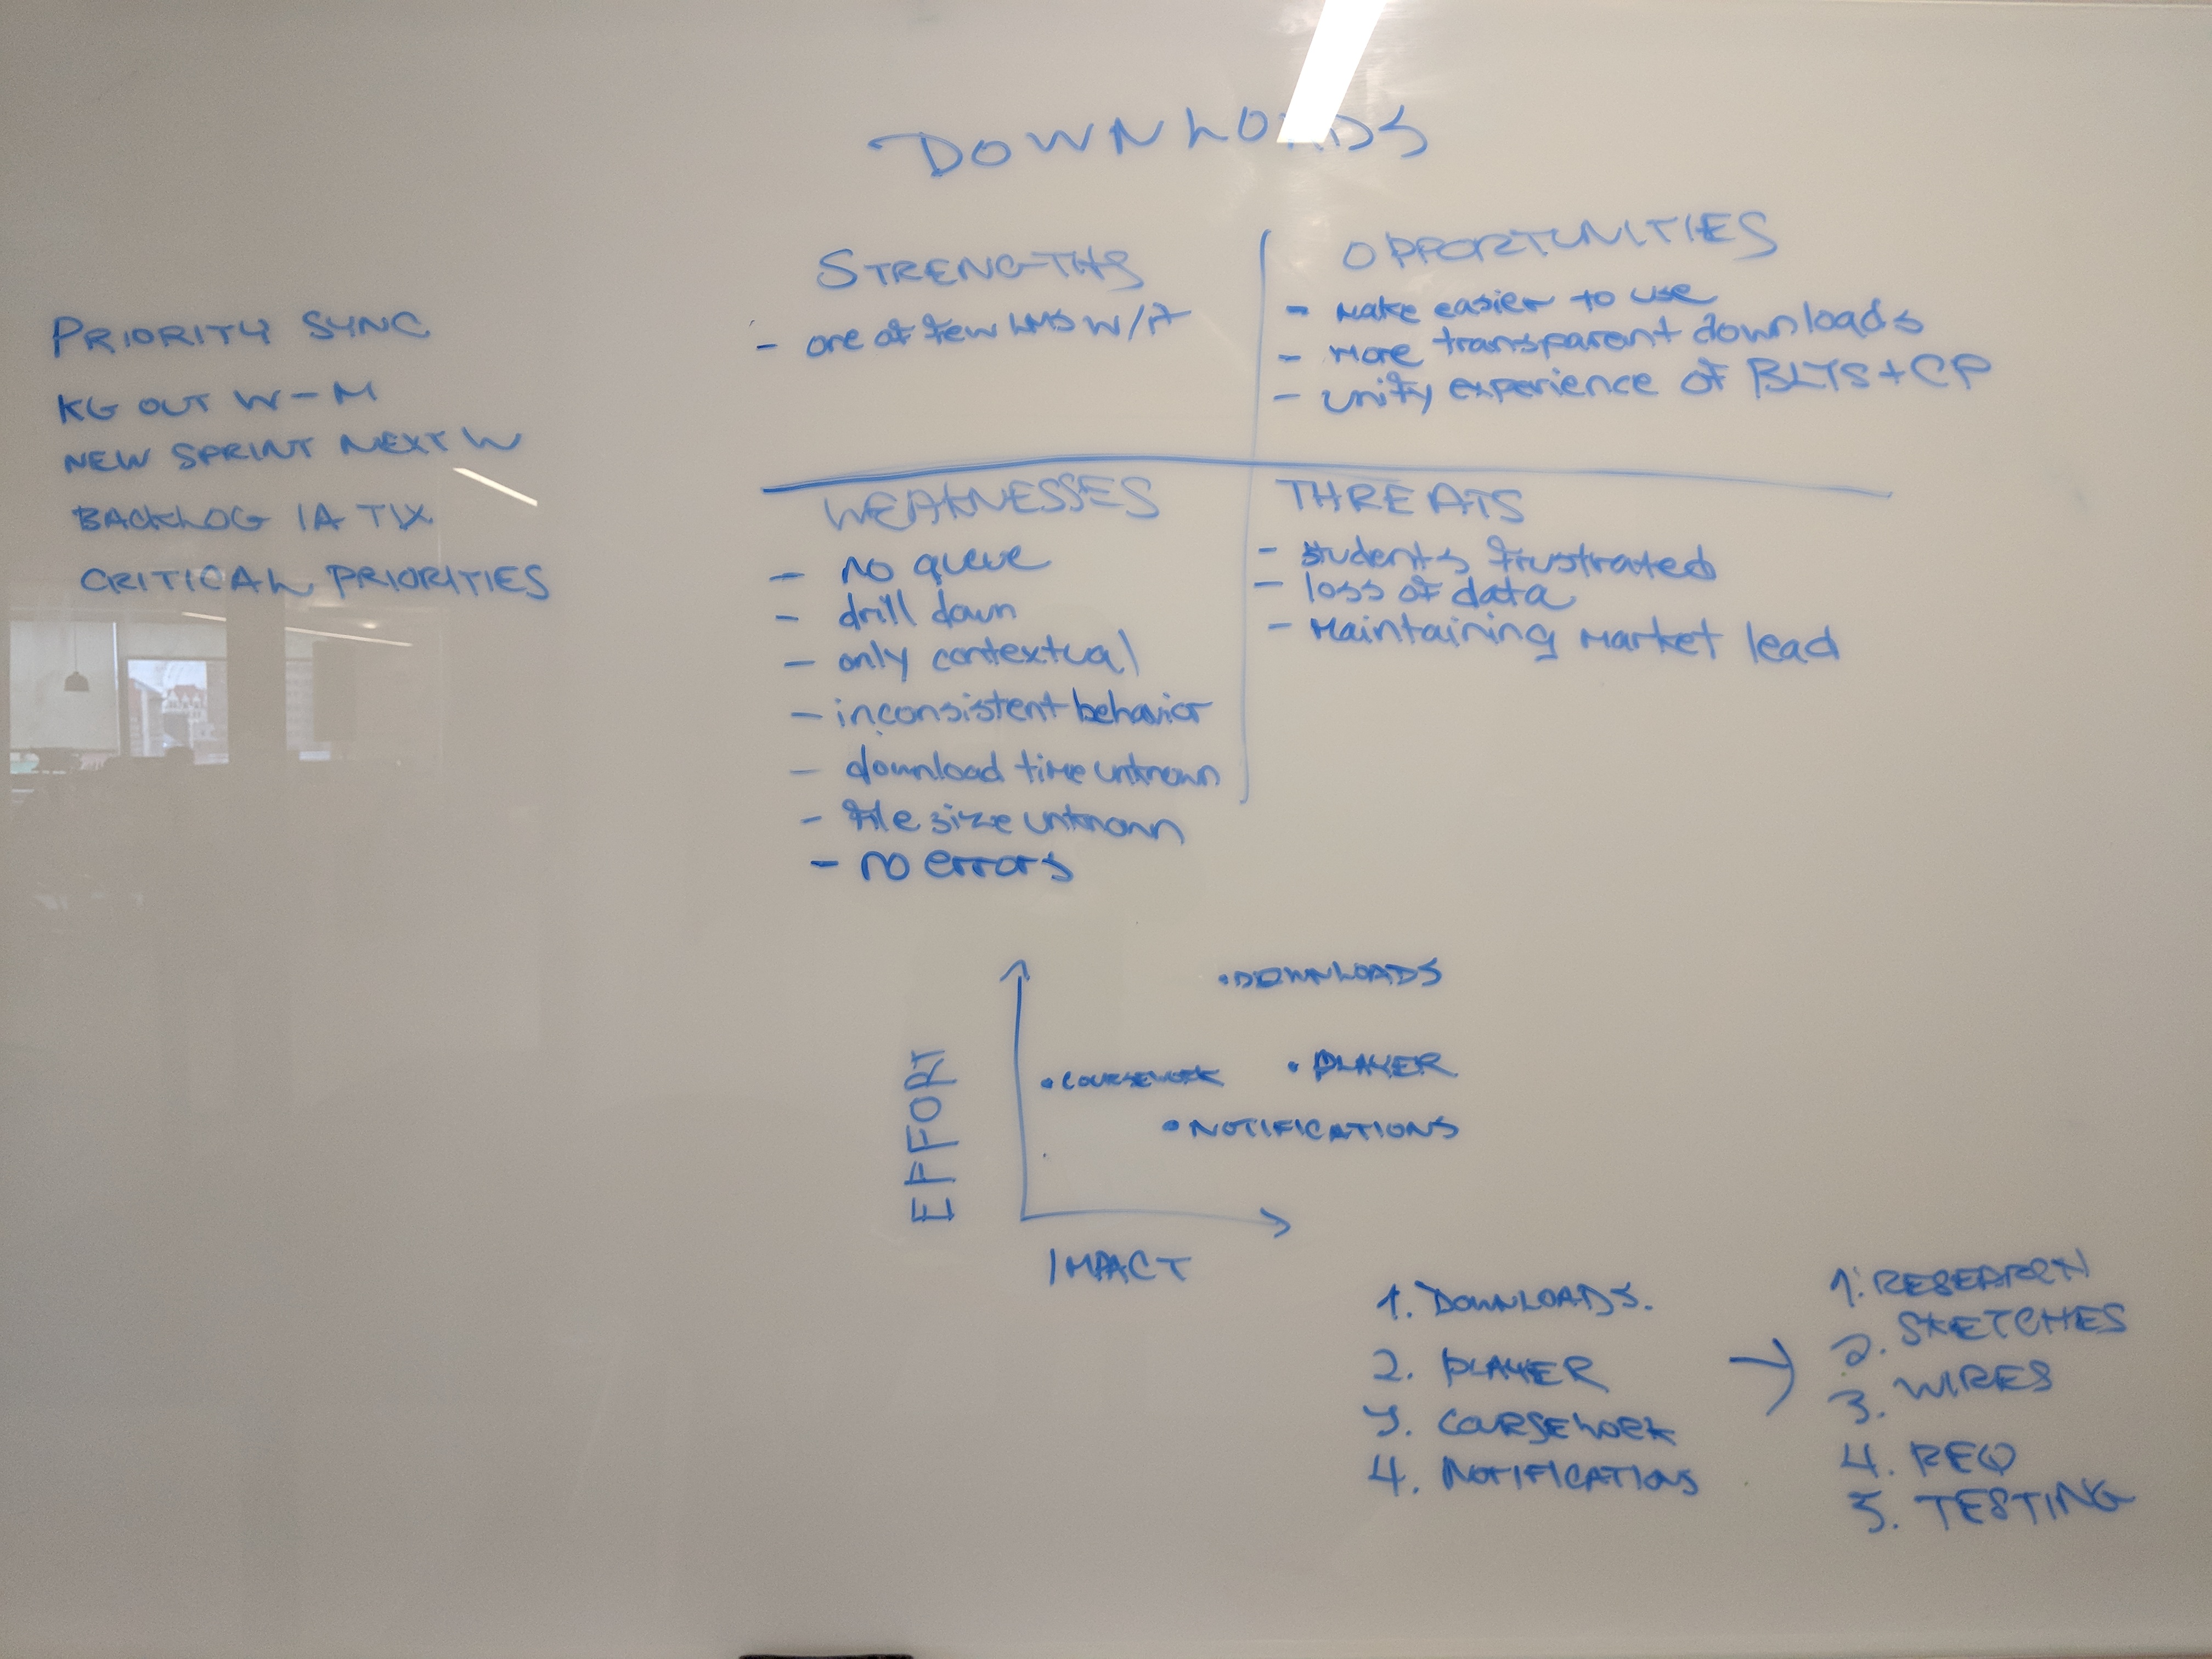 DOWNLOADS
PRIORITY SYNC
KG OUT W-M
NEW SPRINT NEXT W
BACKLOG IA TIX
CRITICAL PRIORITIES
STRENGTHS
- one of few LMS w/it
OPPORTUNITIES
- make easier to use
- more transparent downloads
- unify experience of BLTS + CP
WEAKNESSES
- no queue
- drill down
- only contextual
- inconsistent behavior
- download time unknown
- file size unknown
- no errors
THREATS
- students frustrated
- loss of data
- maintaining market lead
EFFORT
• DOWNLOADS
• COURSEWORK
• PLAYER
• NOTIFICATIONS
IMPACT
1. DOWNLOADS.
2. PLAYER
3. COURSEWORK
4. NOTIFICATIONS
1. RESEARCH
2. SKETCHES
3. WIRES
4. REQ
5. TESTING